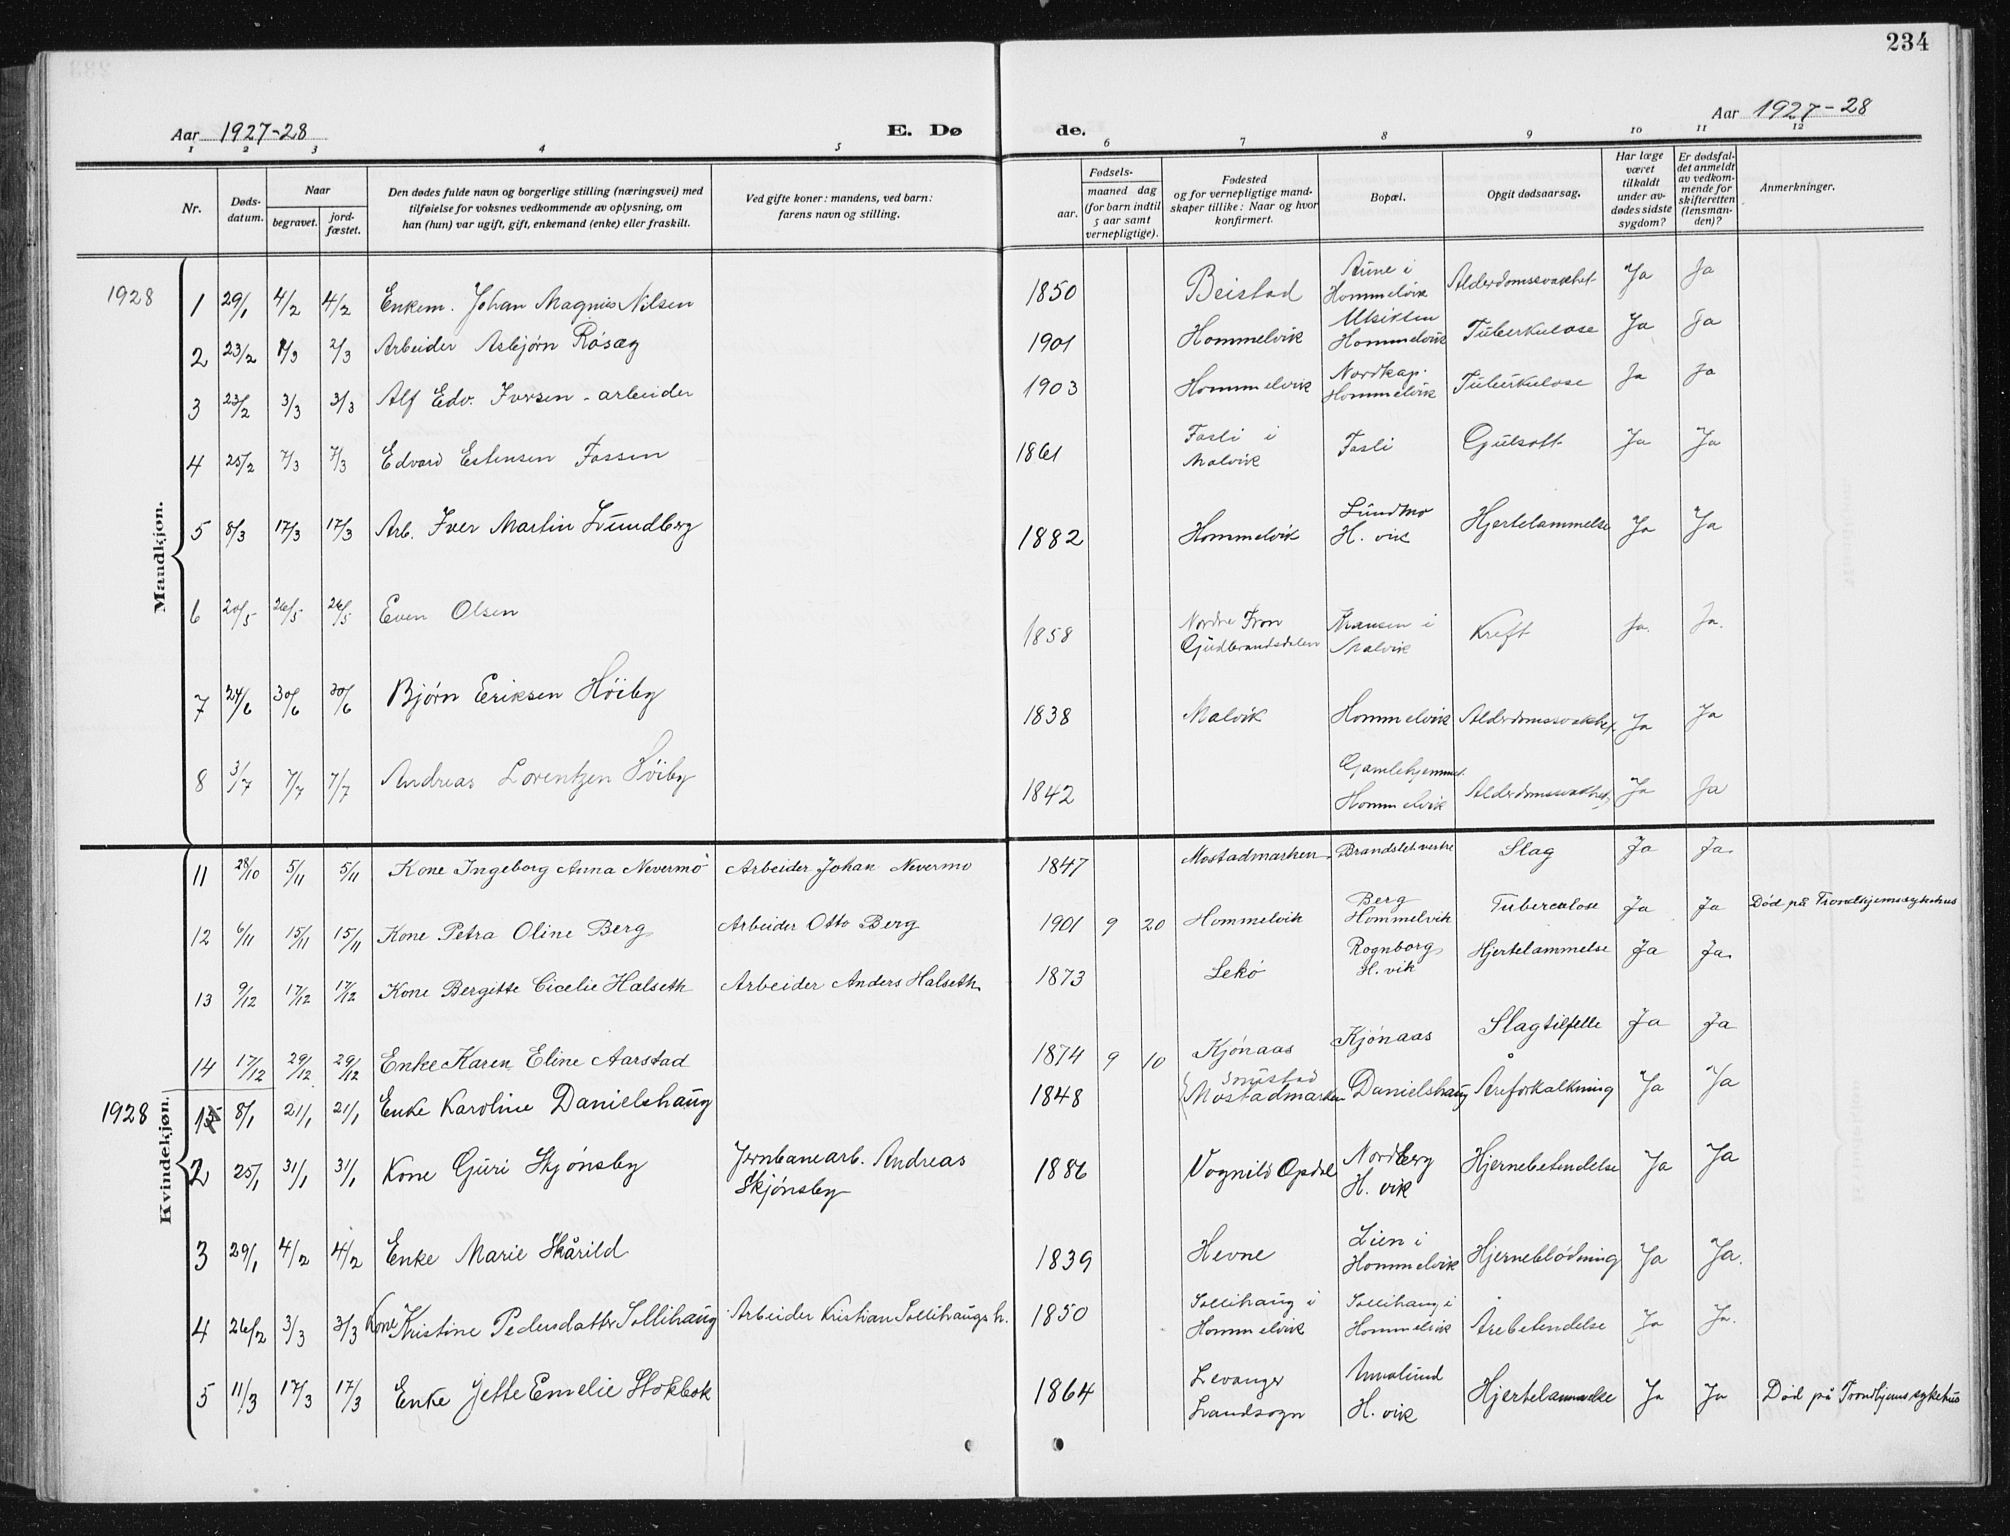 234
Aar 1927-28 E. Dø de. Aar 1927-28
1 2 3 4 5 6 7 8 9 10 11 12
Nr. Døds-datum. Naar begravet. jord-fæstet. Den dødes fulde navn og borgerlige stilling (næringsvei) med tilføielse for voksnes vedkommende av oplysning, om han (hun) var ugift, gift, enkemand (enke) eller fraskilt. Ved gifte koner: mandens, ved barn: farens navn og stilling. Fødsels- aar. maaned dag (for barn indtil 5 aar samt vernepligtige). Fødested og for vernepligtige mand-skaper tillike: Naar og hvor konfirmert. Bopæl. Opgit dødsaarsag. Har læge været tilkaldt under av-dødes sidste sygdom? Er dødsfal-det anmeldt av vedkom-mende for skifteretten (lensman-den)? Anmerkninger.
Mandkjøn.
1928 1 29/1 4/2 4/2 Enkem. Johan Magnus Nilsen 1850 Beistad Aune i Hommelvik Alderdomssvakhet Ja Ja
2 23/2 2/3 Arbeider Asbjørn Røsæg 1901 Hommelvik Utsikten Hommelvik Tuberkulose Ja Ja
3 23/2 3/3 3/3 Alf Edv. Iversen - arbeider 1903 Hommelvik Nordkap. Hommelvik Tuberkulose Ja Ja
4 25/2 7/3 7/3 Edvard Estensen Fossen 1861 Fasli i Malvik Fasli Gulsott Ja Ja
5 8/3 17/3 17/3 Arb. Iver Martin Lundberg 1882 Hommelvik Lundmo H. vik Hjertelammelse Ja Ja
6 20/5 26/5 26/5 Even Olsen 1858 Nordre Fron Gudbrandsdalen i Malvik Kreft Ja. Ja.
7 24/6 30/6 30/6 Bjørn Eriksen Høiby 1838 Malvik Hommelvik Alderdomssvakhet. Ja Ja
8 3/7 7/7 7/7 Andreas Lorentzen Høiby 1842 Gamlehjemmet Hommelvik Alderdomssvakhet, Ja Ja
Kvindekjøn.
11 28/10 5/11 5/11 Kone Ingeborg Anna Nevermo Arbeider Johan Nevermo 1847 Mostadmarken Slag Ja Ja.
12 6/11 15/11 15/11 Kone Petra Oline Berg Arbeider Otto Berg 1901 9 20 Hommelvik Berg Hommelvik Tuberculose Ja Ja Død på Trondhjemssykehus
13 9/12 17/12 17/12 Kone Bergitte Cicelie Halseth Arbeider Anders Halseth 1873 Lekø Rognborg H. vik Hjertelammelse Ja Ja.
14 17/12 29/12 29/12 Enke Karen Eline Aarstad 1874 9 10 Kjønaas Kjønaas Slagtilfelle Ja Ja
1928 1 8/1 21/1 21/1 Enke Karoline Danielshaug 1848 Mostadmarken Danielshaug Åreforkalkning Ja Ja
2 25/1 31/1 31/1 Kone Guri Skjønsby Jernbanearb. Andreas Skjønsby 1886 Vognild Opdal Nordberg H. vik Hjernebetendelse Ja Ja
3 29/1 4/2 4/2 Enke Marie Skårild 1839 Hevne Lien i Hommelvik Hjerneblødning Ja Ja.
4 26/2 3/3 3/3 Kone Kristine Pedersdatter Sollihaug Arbeider Kristian Sollihaugs h. 1850 Sollihaug i Hommelvik Sollihaug i Hommelvik Årebetendelse Ja Ja.
5 11/3 17/3 17/3 Enke Jette Emelie Stokbok 1864 Levanger Landsogn Annalund H. vik Hjertelammelse Ja Ja Død på Trondhjems sykehus